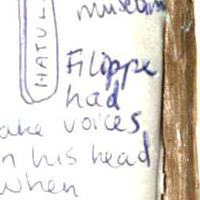 museum
HATUL
Filippe
had
ake voices
n his head
when